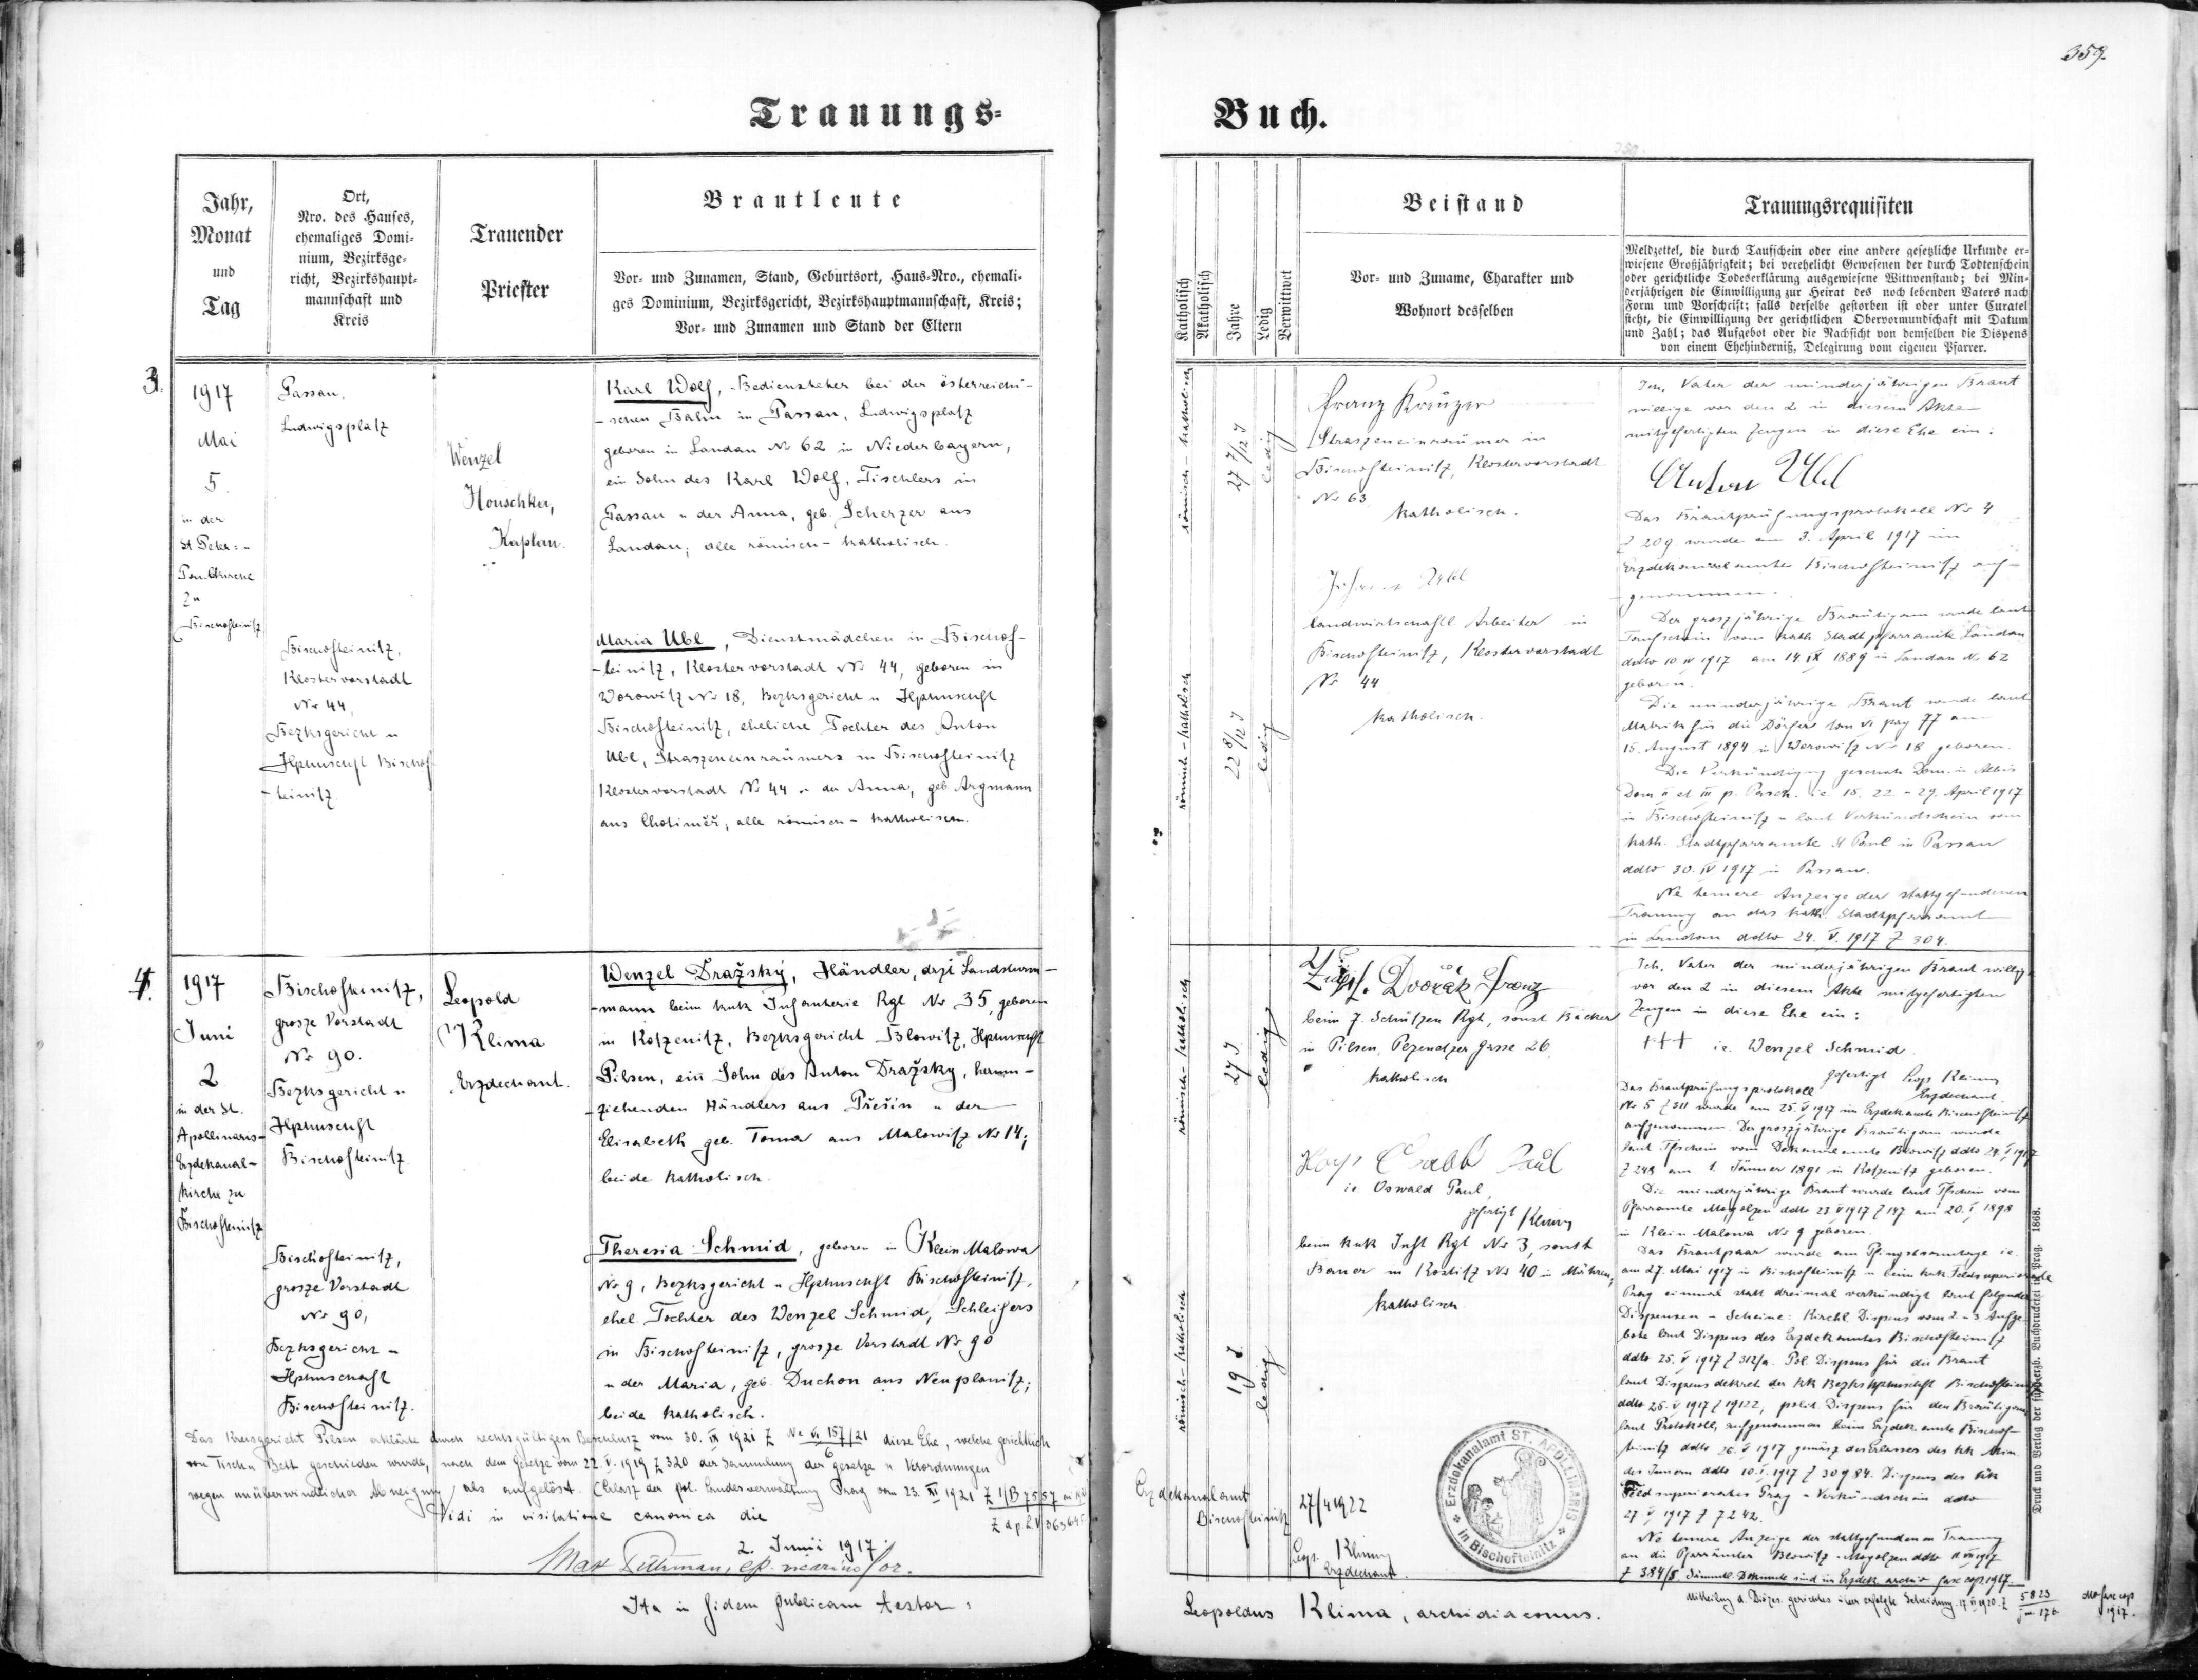 359.
Trauungs-
Buch.
Jahr,
Monat
und
Tag
Ort,
Nro. des Hauses,
ehemaliges Domi-
nium, Bezirksge-
richt, Bezirkshaupt-
mannschaft und
Kreis
Trauender
Priester
Brautleute
Vor- und Zunamen, Stand, Geburtsort, Haus-Nro., ehemali-
ges Dominium, Bezirksgericht, Bezirkshauptmannschaft, Kreis;
Vor- und Zunamen und Stand der Eltern
Katholisch
Akatholisch
Jahre
Ledig
Verwittwet
Beistand
Vor- und Zuname, Charakter und
Wohnort desselben
Trauungsrequisiten
Meldzettel, die durch Taufschein oder eine andere gesetzliche Urkunde er-
wiesene Großjährigkeit; bei verehelicht Gewesenen der durch Todtenschein
oder gerichtliche Todeserklärung ausgewiesene Wittwenstand; bei Min-
derjährigen die Einwilligung zur Heirat des noch lebenden Vaters nach
Form und Vorschrift; falls derselbe gestorben ist oder unter Curatel
steht, die Einwilligung der gerichtlichen Obervormundschaft mit Datum
und Zahl; das Aufgebot oder die Nachsicht von demselben die Dispens
von einem Ehehinderniß, Delegirung vom eigenen Pfarrer.
3.
1917
Mai
5.
in der
St Petr: -
zu
Bischofteinitz
Passau,
Ludwigsplatz
Bischofteinitz,
Klostervorstadt
Nr 44,
Bezksgericht u
Hptmschft Bischof
-teinitz.
Wenzel
Houschka,
Kaplan.
Karl Wolf, Bediensteter bei der österreichi-
-schen Bahn in Passau, Ludwigsplatz
geboren in Landau Nr 62 in Niederbayern,
ein Sohn des Karl Wolf, Tischlers in
Passau u der Anna, geb. Scherzer aus
Landau; alle römisch-katholisch.
Maria Ubl, Dienstmädchen in Bischof-
-teinitz, Klostervorstadt Nr 44, geboren in
Worowitz Nr 18, Bezksgericht u Hptmschft
Bischofteinitz, eheliche Tochter des Anton
Ubl, Straszeneinräumers in Bischofteinitz
Klostervorstadt Nr 44 u der Anna, geb. Argmann
aus Chotiměř; alle römisch-katholisch.
römisch-katholisch
27 7/12 J
ledig
römisch-katholisch
22 8/12 J
ledig
Franz Kreuzer
Straszeneinräumer in
Bischofteinitz, Klostervorstadt
Nr 63
katholisch.
Ubl
landwirtschaftl Arbeiter in
Bischofteinitz, Klostervorstadt
Nr 44
katholisch.
Ich, Vater der minderjährigen Braut
willige vor den 2 in diesem Akte
mitgefertigten Zeugen in diese Ehe ein:
Anton Ubl
Das Brautprüfungsprotokoll Nr 4
Z 209 wurde am 3. April 1917 im
Erzdekanalamte Bischofteinitz auf-
genommen.
Der groszjährige Bräutigam wurde laut
Taufschein vom kath. Stadtpfarramte Landau
ddto 10 IV 1917 am 14. IX 1889 in Landau Nr 62
geboren.
Die minderjährige Braut wurde laut
Matrik für die Dörfer tom VI pag 77 am
15. August 1894 in Worowitz Nr 18 geboren.
Die Verkündigung geschah Dom. in Albis
Dom II et III p. Pasch. i.e. 15. 22. u 29. April 1917
in Bischofteinitz u laut Verkündschein vom
kath. Stadtpfarramte St Paul in Passau
ddto 30. IV 1917 in Passau.
Ne temere Anzeige der stattgefundenen
Trauung an das kath. Stadtpfarramt
in Landau ddto 24. V. 1917 Z 304.
4.
1917
Juni
2
in der St.
Apollinaris-
Erzdekanal-
kirche zu
Bischofteinitz
Bischofteinitz,
grosze Vorstadt
Nr 90.
Bezksgericht u
Hptmschft
Bischofteinitz
Bischofteinitz,
grosze Vorstadt
Nr 90,
Bezksgericht u
Hptmschaft
Bischofteinitz.
Leopold
Klima
Erzdechant.
Wenzel Dražský, Händler, drzt Landsturm-
-mann beim kuk Infanterie Rgt Nr 35, geboren
in Kotzenitz, Bezksgericht Blowitz, Hptmschft
Pilsen, ein Sohn des Anton Dražsky, herum-
-ziehenden Händlers aus Přešín u der
Elisabeth geb. Toma aus Malowitz Nr 14;
beide katholisch.
Theresia Schmid, geboren in Klein Malowa
Nr 9, Bezksgericht u Hptmschft Bischofteinitz,
ehel. Tochter des Wenzel Schmid, Schleifers
in Bischofteinitz, grosze Vorstadt Nr 90
u der Maria, geb. Duchon aus Neuplonitz;
beide katholisch.
römisch-katholisch
27 J
ledig
römisch-katholisch
19 J
ledig
Zugsf. Dvořák Franz
beim 7. Schützen Rgt, sonst Bäcker
in Pilsen, Gasse 26
katholisch
Paul
ie Oswald Paul,
gefertigt Klima
beim kuk Inft Rgt Nr 3, sonst
Bauer in Kostitz Nr 40 in Mähren;
katholisch
Ich, Vater der minderjährigen Braut willige
vor den 2 in diesem Akte mitgefertigten
Zeugen in diese Ehe ein:
+++ ie. Wenzel Schmid
gefertigt Leop Klima
Erzdechant.
Das Brautprüfungsprotokoll
Nr 5 Z 311 wurde am 25. V 1917 im Erzdekanlamte Bischofteinitz
aufgenommen. Der groszjährige Bräutigam wurde
laut Tfschein vom Dekanalamte Blowitz ddto 24. V 1917
Z 248 am 1. Jänner 1891 in Kotzenitz geboren.
Die minderjährige Braut wurde laut Tfschein vom
Pfarramte Mogolzen ddto 23. V 1917 Z 147 am 20. I 1898
in Klein Malowa Nr 9 geboren.
Das Brautpaar wurde am Pfingstsonntage ie.
am 27. Mai 1917 in Bischofteinitz u beim kuk Feldsuperiorate
Prag einmal statt dreimal verkündigt laut folgender
Dispensen u Scheine: Kirchl. Dispens vom 2 u 3 Aufge-
bote laut Dispens des Erzdekanamtes Bischofteinitz
ddto 25. V 1917 Z 312/a. Pol. Dispens für die Braut
laut Dispensdekret der kk Bezkshptmschft Bischofteinitz
ddto 25. V 1917 Z 19122, polit. Dispens für den Bräutigam
laut Protokoll, aufgenommen beim Erzdek.amte Bischof-
teinitz ddto 26. V 1917 gemäsz des Erlasses des kk Min
des Innern ddto 10. I. 1917 Z 30984. Dispens des kuk
Feldsuperiorates Prag u Verkündschein ddto
27 V 1917 Z 7242.
Ne temere Anzeige der stattgefundenen Trauung
an die Pfarrämter Blowitz u Mogolzen ddto
Z 384/5. Sämmtl. Dokumente sind im Erzdek. archiv fasc cop. 1917.
Das Kreisgericht Pilsen erklärte durch rechtsgültigen Beschlusz vom 30. IX 1921 Z Nc VI 157/21 6 diese Ehe, welche gerichtlich
von Tisch u Bett geschieden wurde, nach dem Gesetze vom 22. V. 1919 Z 320 der Sammlung der Gesetze u Verordnungen
wegen unüberwindlicher Abneigung als aufgelöst. (Erlasz der pol. Landesverwaltung Prag vom 23. XI 1921 Z
Vidi in visitatione canonica die
2. Junii 1917.
vicarius for.
Ita in fidem publicam testor:
Erzdekanalamt
Bischofteinitz 27/4 1922
Leop. Klima
Erzdechant.
Erzdekanalamt ST. APOLLINARIS
in Bischofteinitz
Leopoldus Klima, archidiaconus.
Mitteilung d. Diözes. gerichtes über erfolgte Scheidung. 17. VI 1920. Z 5823
Druck und Verlag der fürsterzb. Buchdruckerei in Prag. 1868.